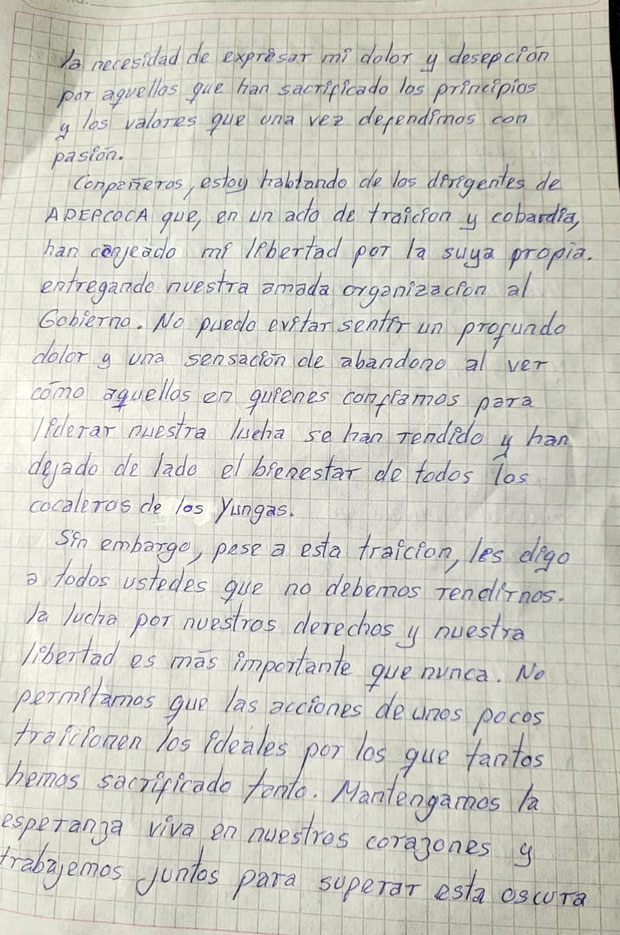 la necesidad de expresar mi dolor y desepción
por aquellos que han sacrificado los principios
y los valores que una vez defendimos con
pasión.
Conpañeros, estoy hablando de los dirigentes de
ADEPCOCA que, en un acto de traicion y cobardia,
han canjeado mi libertad por la suya propia.
entregando nuestra amada organizacion al
Gobierno. No puedo evitar sentir un profundo
dolor y una sensación de abandono al ver
cómo aquellos en quienes confiamos para
liderar nuestra lucha se han rendido y han
dejado de lado el bienestar de todos los
cocaleros de los Yungas.
Sin embargo, pese a esta traicion, les digo
a todos ustedes que no debemos rendirnos.
la lucha por nuestros derechos y nuestra
libertad es más importante que nunca. No
permitamos que las acciones de unos pocos
traicionen los ideales por los que tantos
hemos sacrificado tanto. Mantengamos la
esperanza viva en nuestros corazones y
trabajemos juntos para superar esta oscura